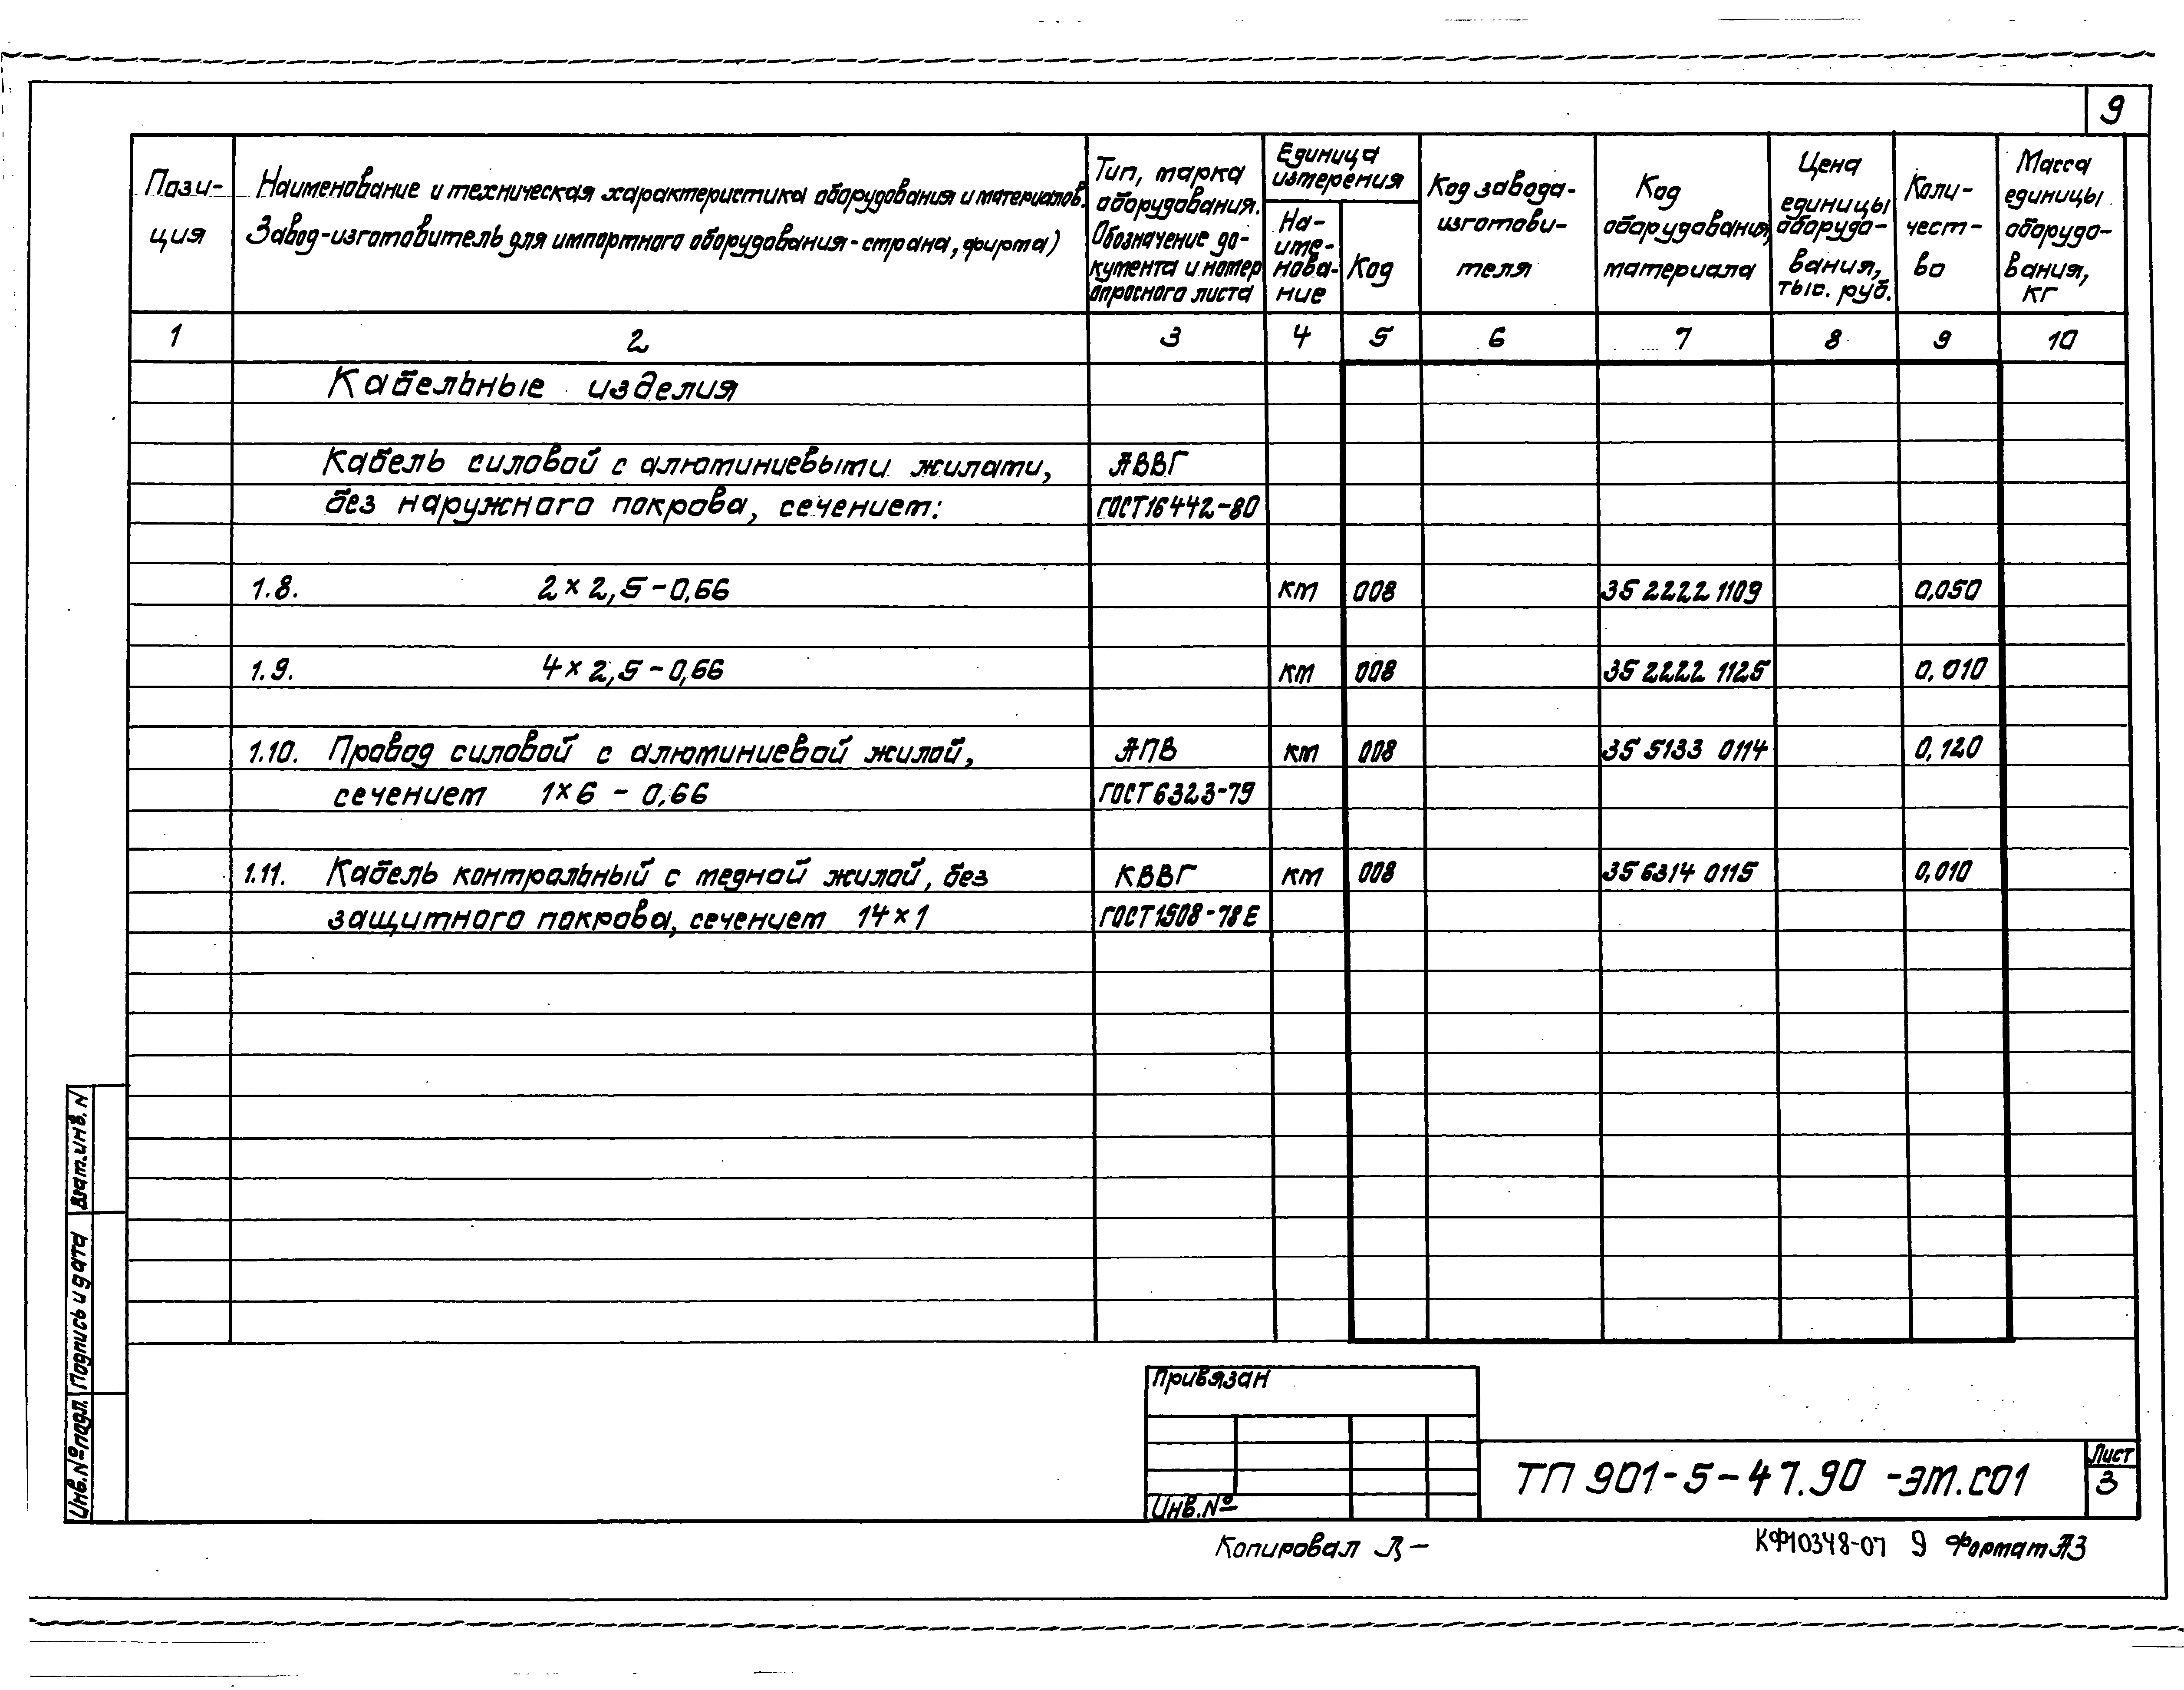 9
Пози-
ция
Наименование и техническая характеристика оборудования и материалов.
Завод-изготовитель для импортного оборудования-страна, фирма)
Тип, марка
оборудования.
Обозначение до-
кумента и номер
опросного листа
Единица
измерения
На-
име-
нова-
ние
Код
Код завода-
изготови-
теля
Код
оборудования,
материала
Цена
единицы
оборудо-
вания,
тыс. руб.
Коли-
чест-
во
Масса
единицы
оборудо-
вания,
кг
1 2 3 4 5 6 7 8 9 10
Кабельные изделия
Кабель силовой с алюминиевыми жилами, АВВГ
без наружного покрова, сечением: ГОСТ16442-80
1.8. 2×2,5-0,66 км 008 35 2222 1109 0,050
1.9. 4×2,5-0,66 км 008 35 2222 1125 0,010
1.10. Провод силовой с алюминиевой жилой, АПВ км 008 35 5133 0114 0,120
сечением 1×6 - 0,66 ГОСТ6323-79
1.11. Кабель контрольный с медной жилой, без КВВГ км 008 35 6314 0115 0,010
защитного покрова, сечением 14×1 ГОСТ1508-78Е
Взам.инв. N
Подпись и дата
Инв.№ подл.
Привязан
Инв.№
ТП 901-5-47.90 -ЭМ.СО1
Лист
3
Копировал
КФ10348-07 9 Формат А3